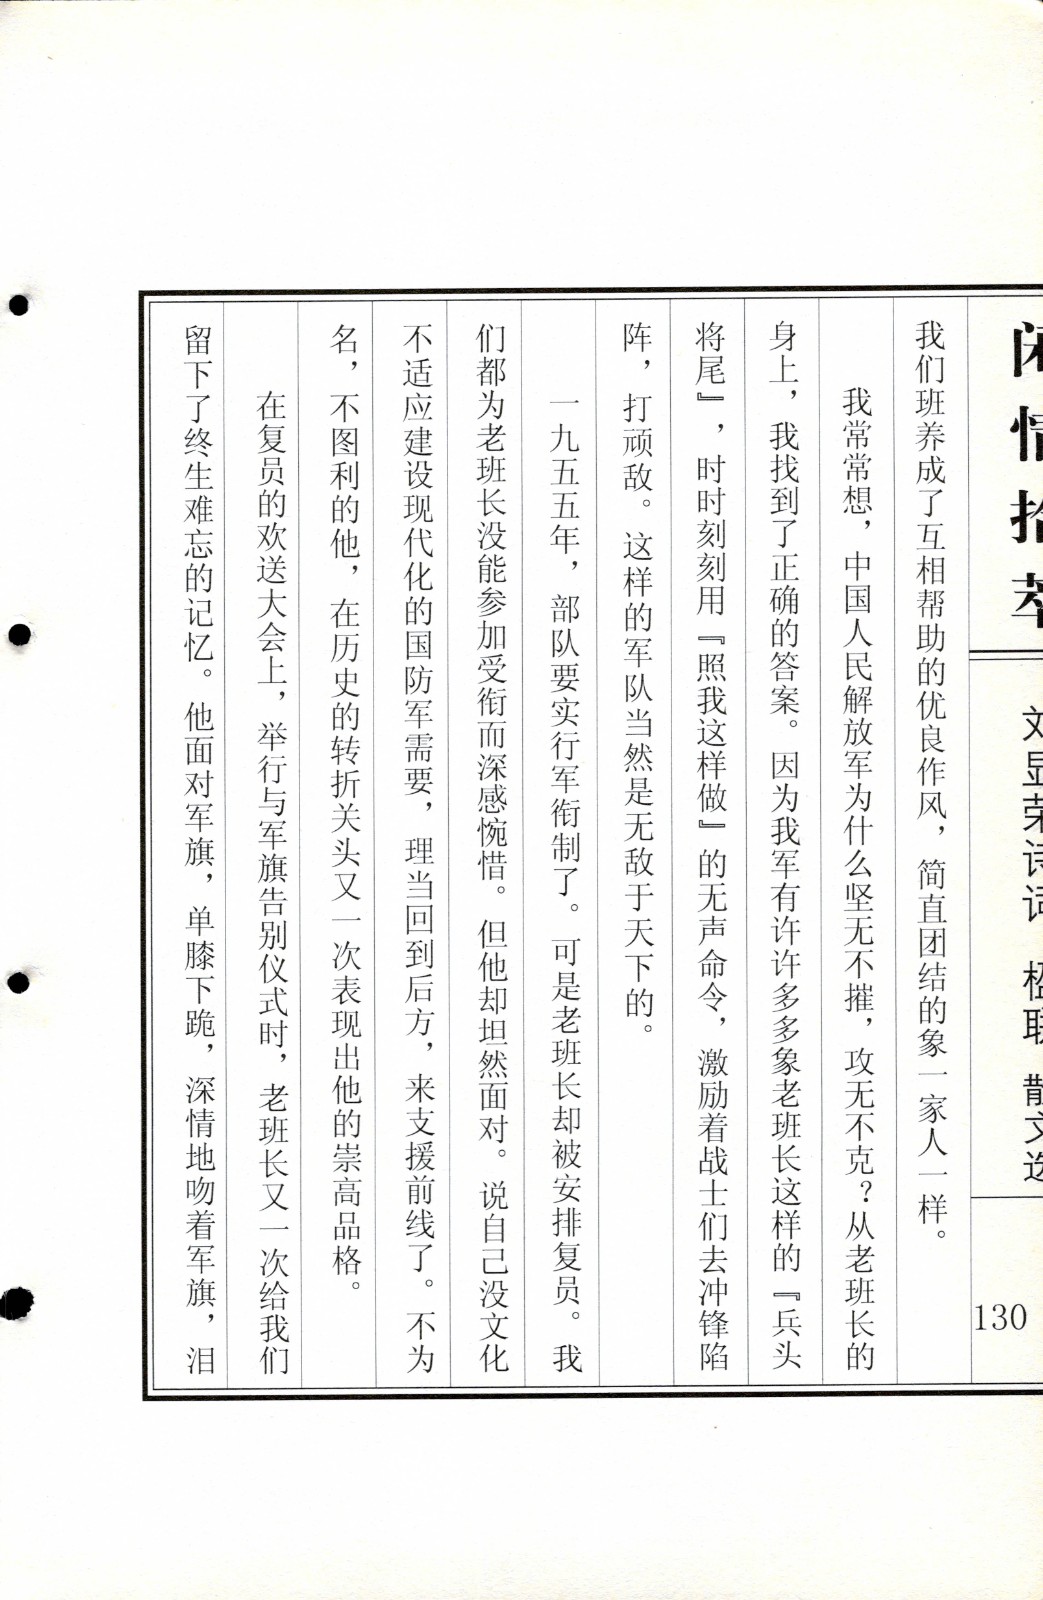 闲情拾萃
刘显荣诗词 楹联 散文选
130
我们班养成了互相帮助的优良作风，简直团结的象一家人一样。
我常常想，中国人民解放军为什么坚无不摧，攻无不克？从老班长的
身上，我找到了正确的答案。因为我军有许许多多象老班长这样的『兵头
将尾』，时时刻刻用『照我这样做』的无声命令，激励着战士们去冲锋陷
阵，打顽敌。这样的军队当然是无敌于天下的。
一九五五年，部队要实行军衔制了。可是老班长却被安排复员。我
们都为老班长没能参加受衔而深感惋惜。但他却坦然面对。说自己没文化
不适应建设现代化的国防军需要，理当回到后方，来支援前线了。不为
名，不图利的他，在历史的转折关头又一次表现出他的崇高品格。
在复员的欢送大会上，举行与军旗告别仪式时，老班长又一次给我们
留下了终生难忘的记忆。他面对军旗，单膝下跪，深情地吻着军旗，泪